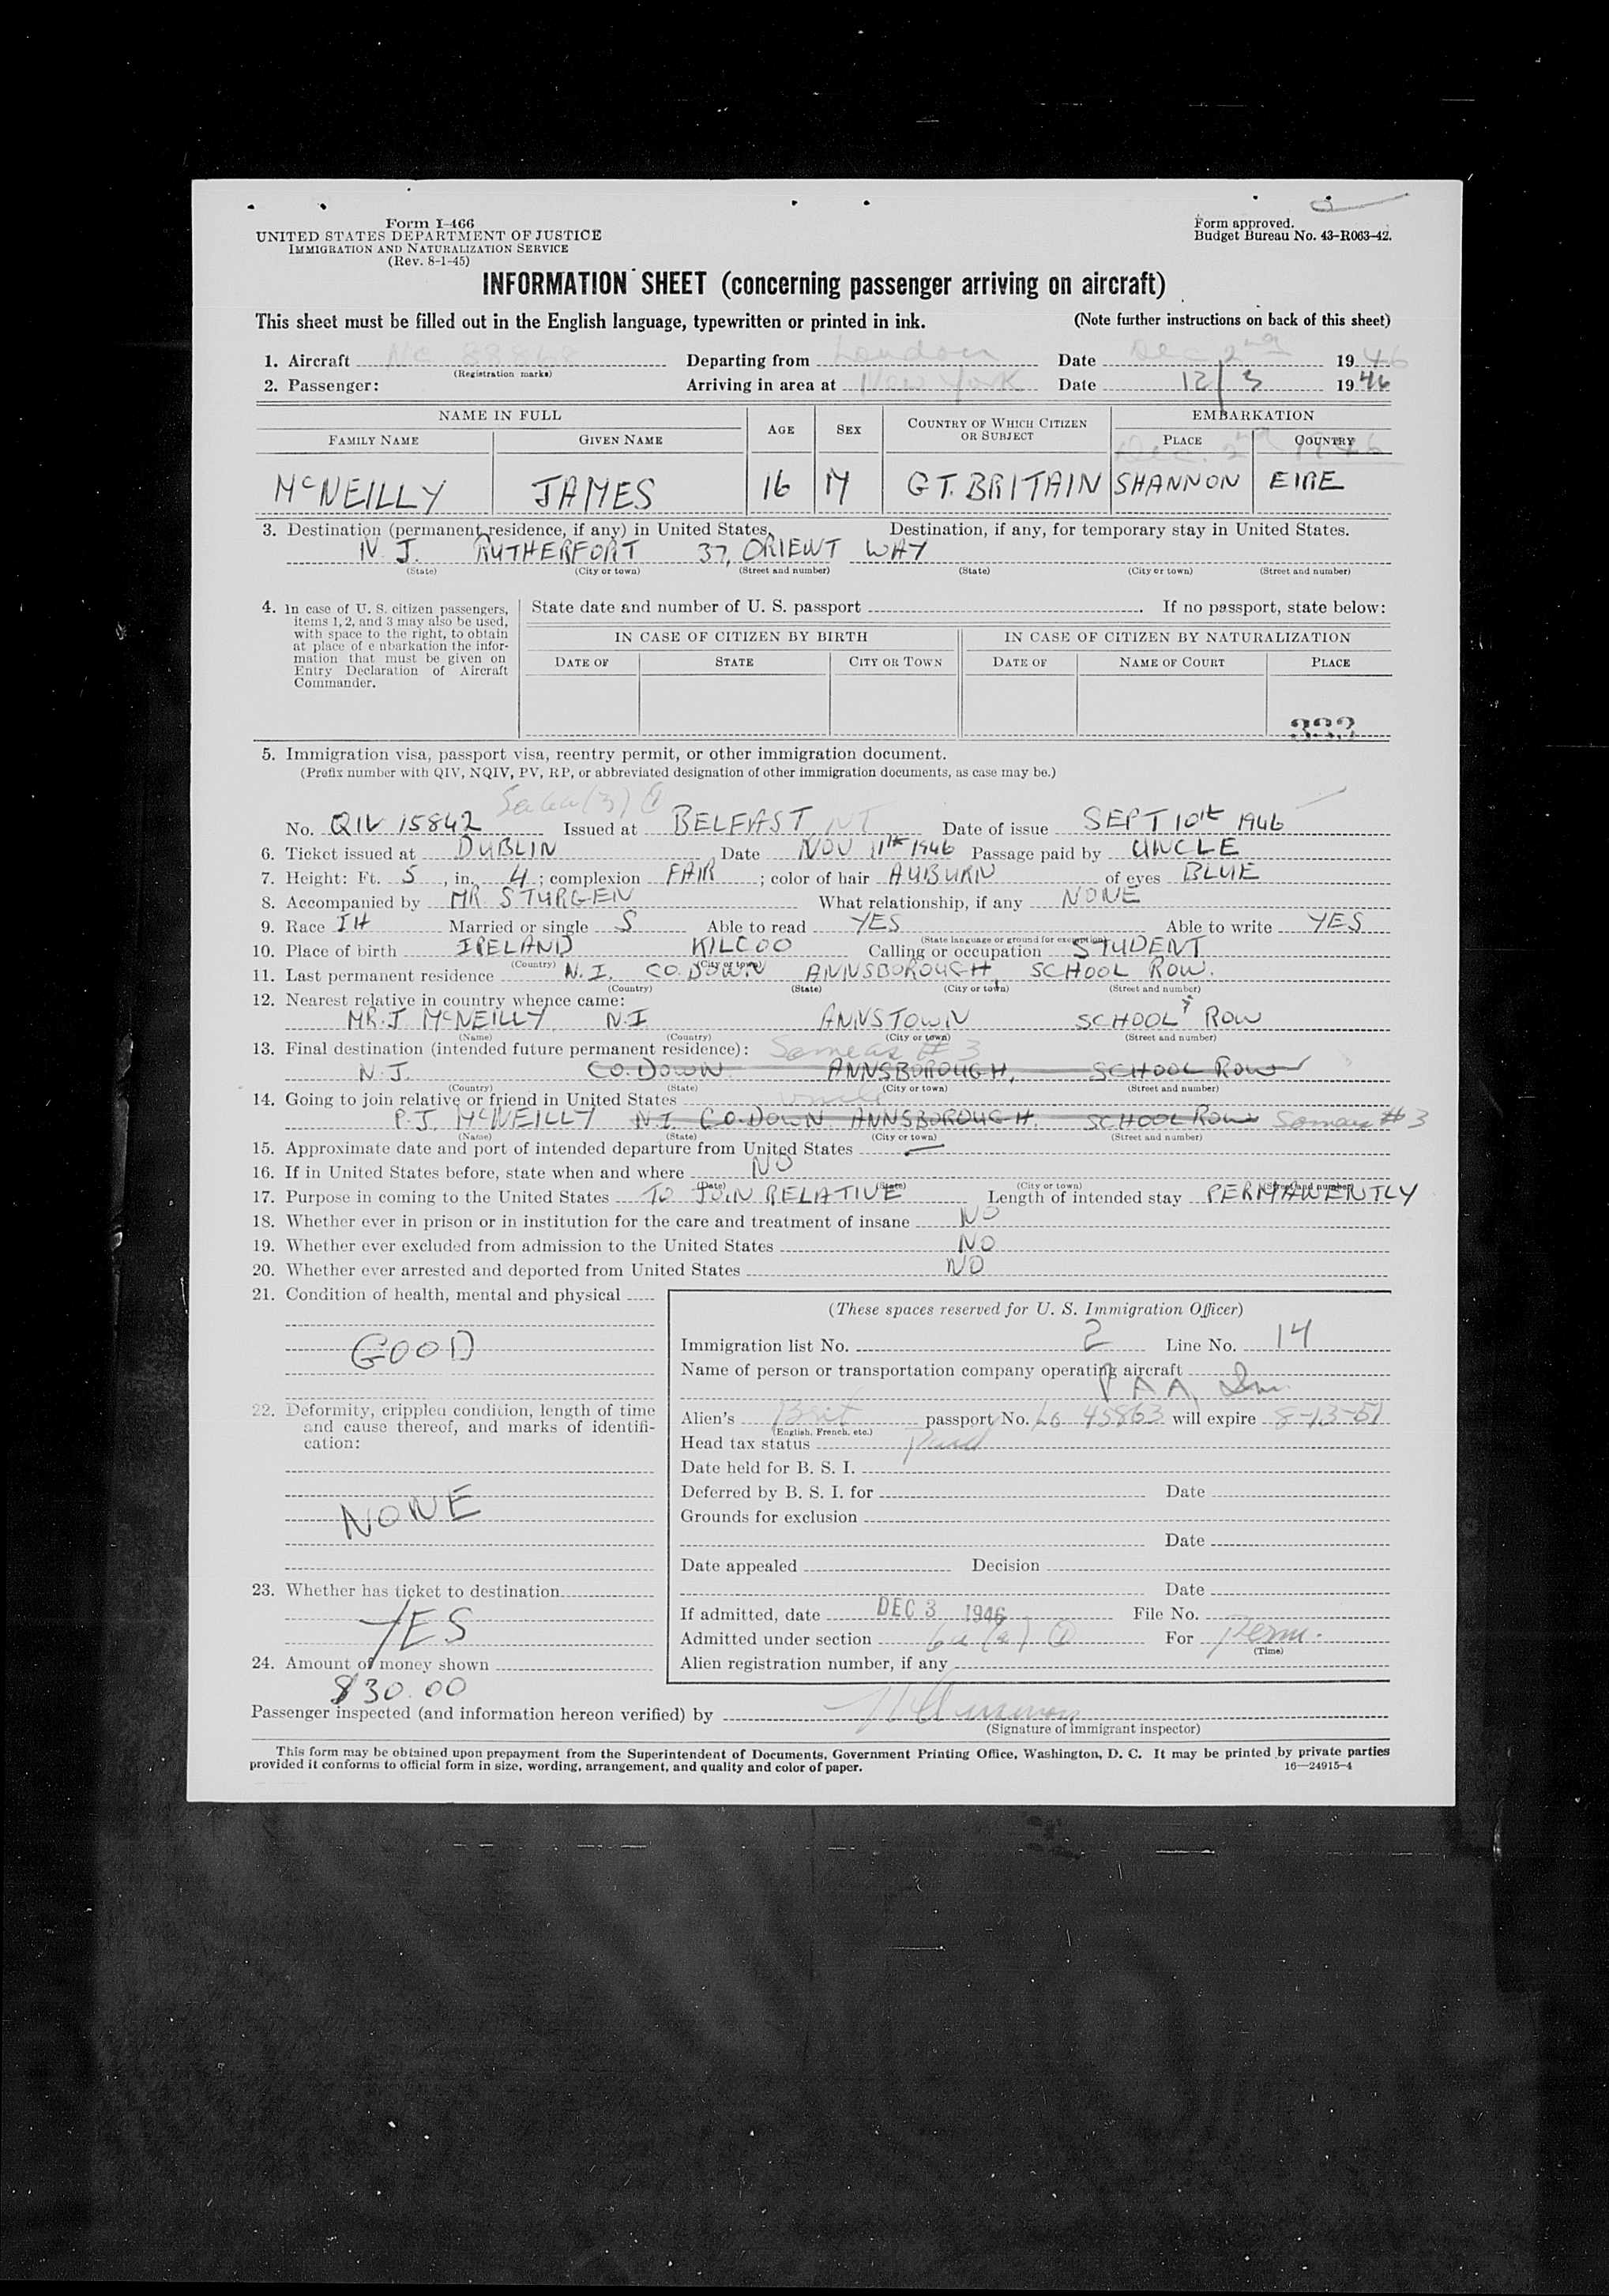 Form I-466
UNITED STATES DEPARTMENT OF JUSTICE
IMMIGRATION AND NATURALIZATION SERVICE
(Rev. 8-1-45)
Form approved.
Budget Bureau No. 43-R063-42.
INFORMATION SHEET (concerning passenger arriving on aircraft)
This sheet must be filled out in the English language, typewritten or printed in ink. (Note further instructions on back of this sheet)
1. Aircraft NC 88868 Departing from London Date Dec 2nd 1946
(Registration marks)
2. Passenger: Arriving in area at New York Date 12/3 1946
NAME IN FULL AGE SEX COUNTRY OF WHICH CITIZEN OR SUBJECT EMBARKATION
FAMILY NAME GIVEN NAME PLACE COUNTRY
Dec. 2nd 1946
McNEILLY JAMES 16 M GT. BRITAIN SHANNON EIRE
3. Destination (permanent residence, if any) in United States. Destination, if any, for temporary stay in United States.
N. J. RUTHERFORT 37, ORIENT WAY
(State) (City or town) (Street and number) (State) (City or town) (Street and number)
4. In case of U. S. citizen passengers, items 1, 2, and 3 may also be used, with space to the right, to obtain at place of e nbarkation the information that must be given on Entry Declaration of Aircraft Commander.
State date and number of U. S. passport . If no passport, state below:
IN CASE OF CITIZEN BY BIRTH IN CASE OF CITIZEN BY NATURALIZATION
DATE OF STATE CITY OR TOWN DATE OF NAME OF COURT PLACE
333
5. Immigration visa, passport visa, reentry permit, or other immigration document.
(Prefix number with QIV, NQIV, PV, RP, or abbreviated designation of other immigration documents, as case may be.)
No. QIV 15842 Issued at BELFAST NI Date of issue SEPT 10th 1946
6. Ticket issued at DUBLIN Date NOV 11th 1946 Passage paid by UNCLE
7. Height: Ft. 5, in. 4; complexion FAIR; color of hair AUBURN of eyes BLUE
8. Accompanied by MR STURGEN What relationship, if any NONE
9. Race IH Married or single S Able to read YES Able to write YES
(State language or ground for exemption)
10. Place of birth IRELAND KILCOO Calling or occupation STUDENT
(Country) (City or town)
11. Last permanent residence N. I. CO. DOWN ANNSBOROUGH, SCHOOL ROW.
(Country) (State) (City or town) (Street and number)
12. Nearest relative in country whence came:
MR. J McNEILLY N.I. ANNSTOWN SCHOOL ROW
(Name) (Country) (City or town) (Street and number)
13. Final destination (intended future permanent residence): Same as # 3
N. J. CO. DOWN ANNSBOROUGH, SCHOOL ROW
(Country) (State) (City or town) (Street and number)
14. Going to join relative or friend in United States uncle
P. J. McNEILLY N.I. CO. DOWN ANNSBOROUGH. SCHOOL ROW Same as # 3
(Name) (State) (City or town) (Street and number)
15. Approximate date and port of intended departure from United States —
16. If in United States before, state when and where NO
(Date) (State) (City or town) (Street and number)
17. Purpose in coming to the United States TO JOIN RELATIVE Length of intended stay PERMANENTLY
18. Whether ever in prison or in institution for the care and treatment of insane NO
19. Whether ever excluded from admission to the United States NO
20. Whether ever arrested and deported from United States NO
21. Condition of health, mental and physical
GOOD
22. Deformity, crippled condition, length of time and cause thereof, and marks of identification:
NONE
23. Whether has ticket to destination
YES
24. Amount of money shown
$30.00
(These spaces reserved for U. S. Immigration Officer)
Immigration list No. 2 Line No. 14
Name of person or transportation company operating aircraft
P A A
Alien's Brit passport No. LO 45863 will expire 8-13-51
(English, French, etc.)
Head tax status Paid
Date held for B. S. I.
Deferred by B. S. I. for Date
Grounds for exclusion
Date
Date appealed Decision
Date
If admitted, date DEC 3 1946 File No.
Admitted under section For Perm.
(Time)
Alien registration number, if any
Passenger inspected (and information hereon verified) by
(Signature of immigrant inspector)
This form may be obtained upon prepayment from the Superintendent of Documents, Government Printing Office, Washington, D. C. It may be printed by private parties
provided it conforms to official form in size, wording, arrangement, and quality and color of paper. 16—24915-4